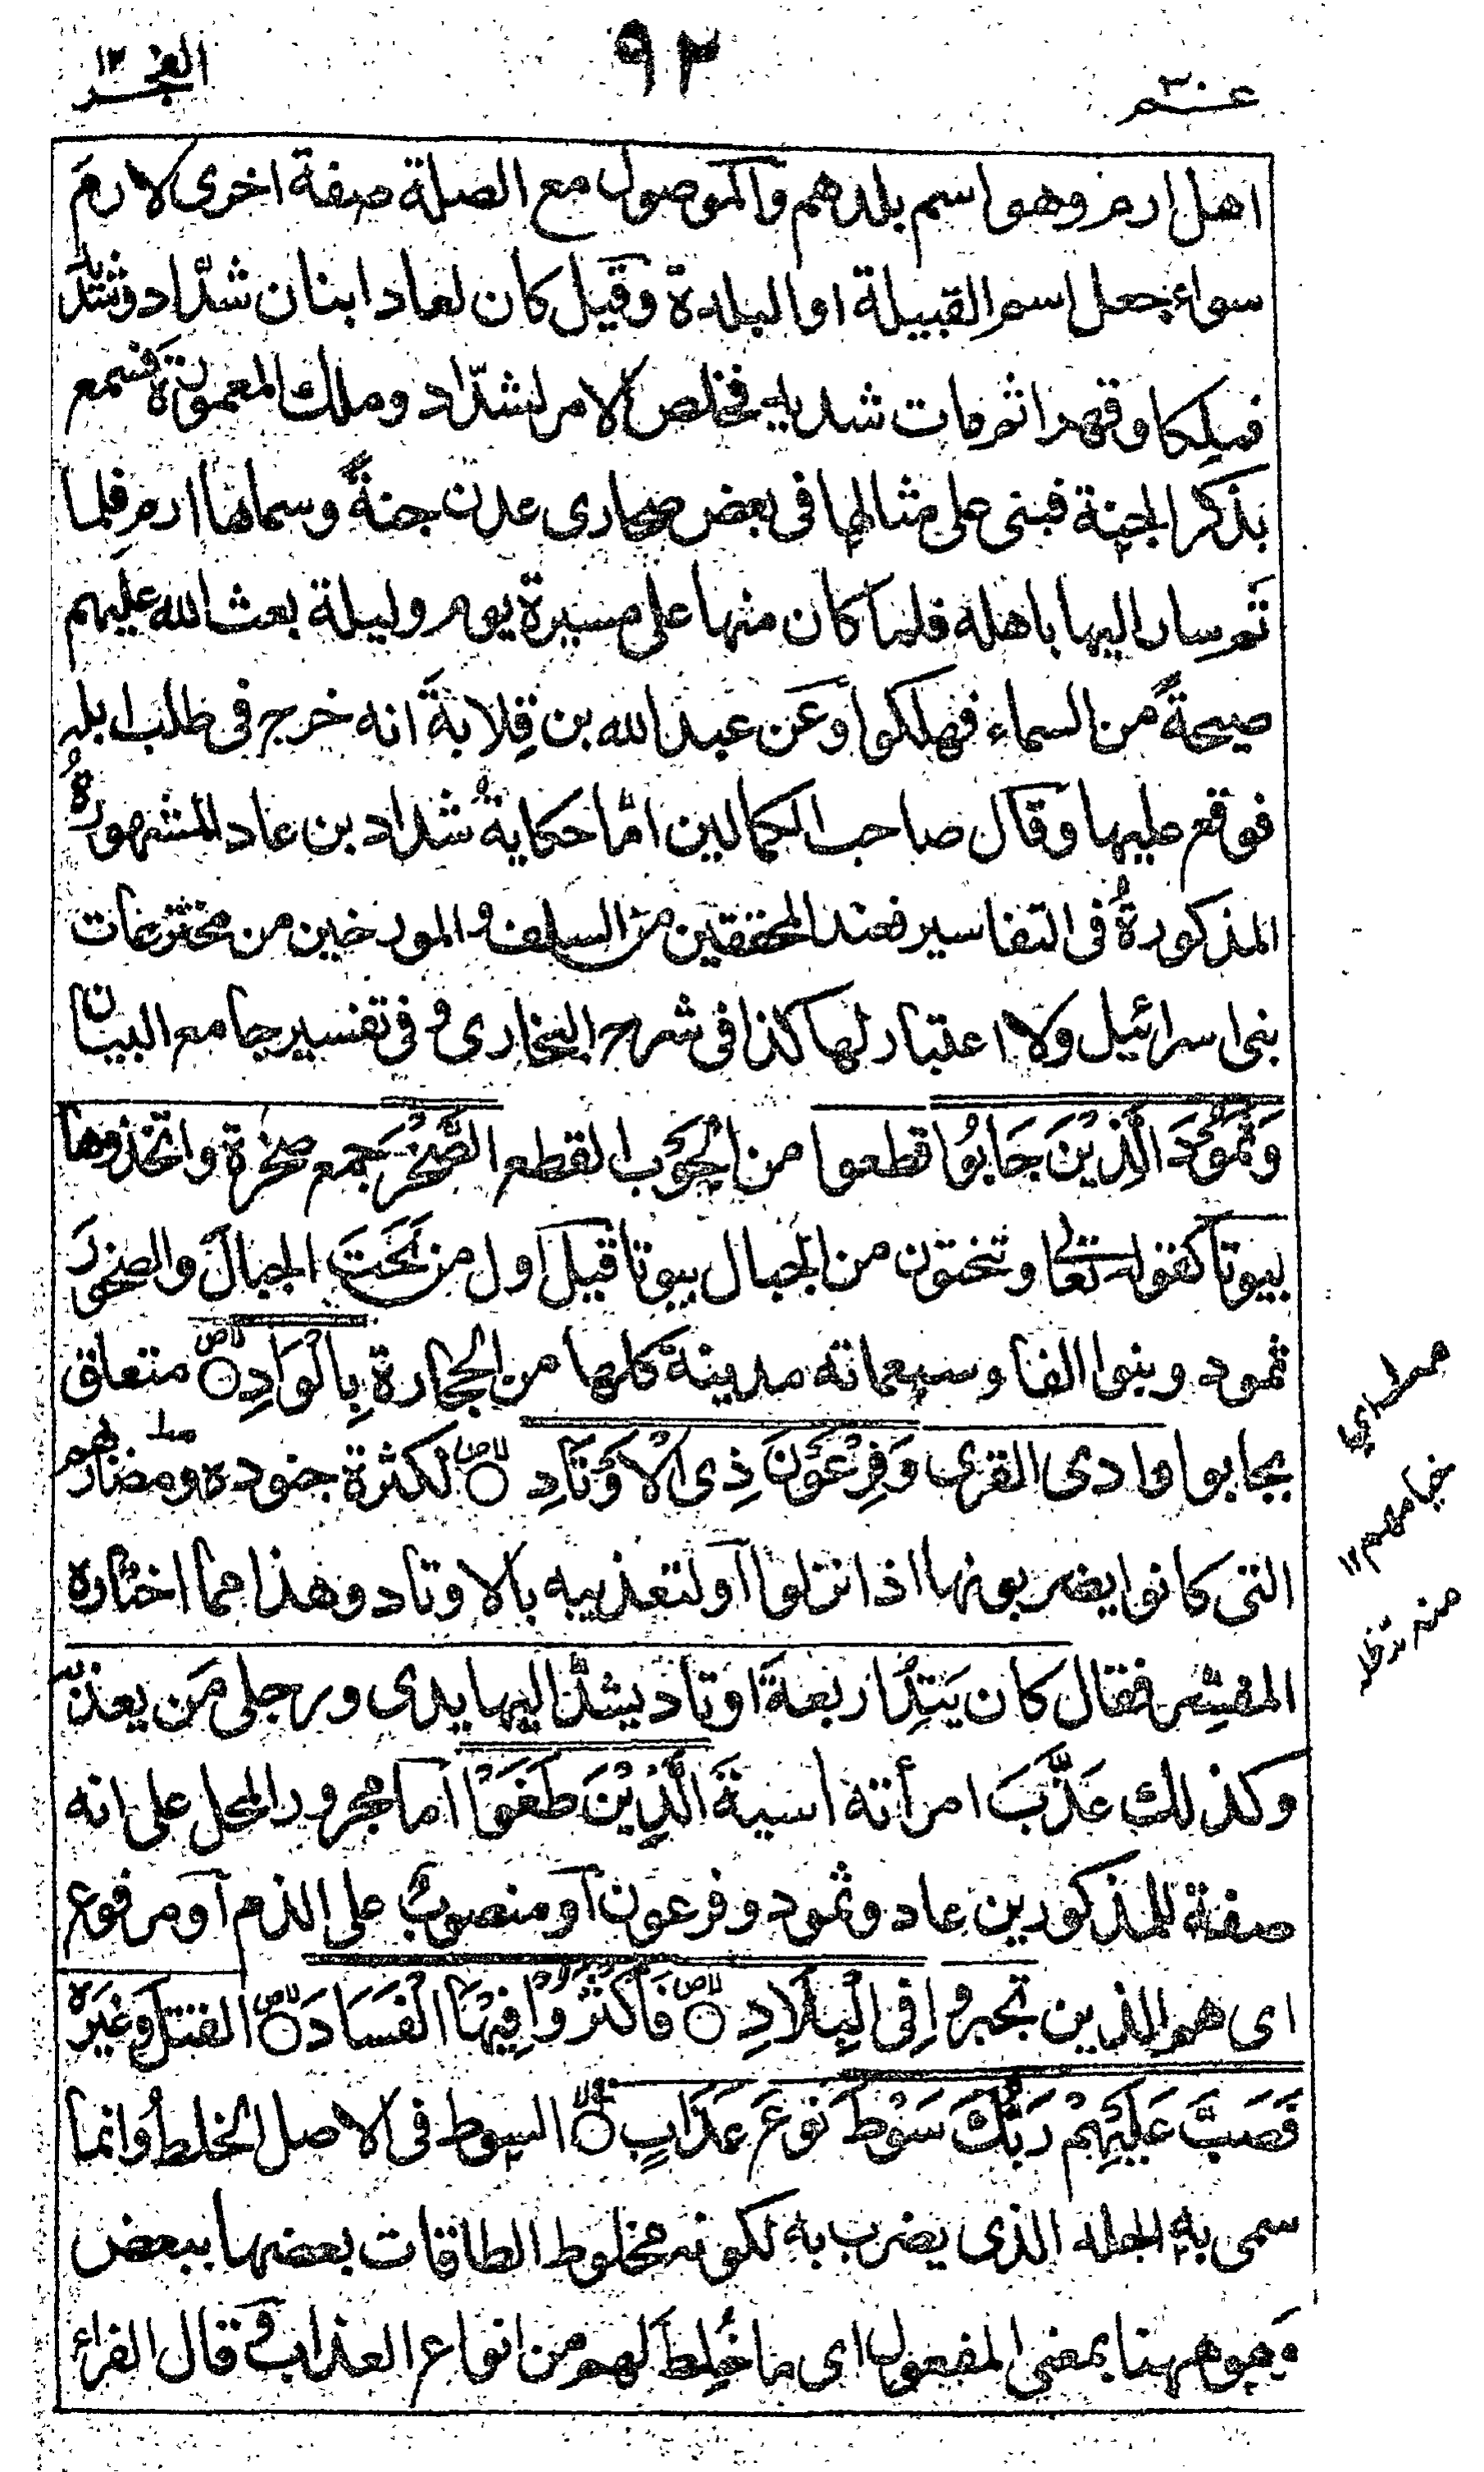 عـم ٣٠
٩٢
الفجر ١٢
اهل ارم وهو اسم بلدهم والموصول مع الصلة صفة اخرى لارمَ
سواء جعل اسم القبيلة او البلدة وقيل كان لعاد ابنان شدّاد وشديد
فملِكا وقهرا ثم مات شديد فخلص الامر لشدّاد وملك المعمورة فسمع
بذكر الجنة فبنى على مثالها فى بعض صحارى عدن جنةً وسماها ارم فلما
تم سار اليها باهله فلما كان منها على مسيرة يوم وليلة بعث الله عليهم
صيحةً من السماء فهلكوا وعن عبد الله بن قِلابةَ انه خرج فى طلب ابله
فوقع عليها وقال صاحب الكمالين امّا حكايةُ شداد بن عاد المشهورةُ
المذكورةُ فى التفاسير فعند المحققين من السلف والمورخين من مخترعات
بنى اسرائيل ولا اعتبار لها كذا فى شرح البخارى وفى تفسير جامع البيان
وَثَمُوْدَ الَّذِيْنَ جَابُوا قطعوا من الجَوْب القطع الصَّخْرَ جمع صخرة واتخذوها
بيوتا كقوله تعالى وتنحتون من الجبال بيوتا قيل اول من نَحَتَ الجبالَ والصخورَ
ثمود وبنوا الفا وسبعمائة مدينة كلها من الحجارة بِالْوَادِ لاص متعلق
بجابوا وادى القرى وَفِرْعَوْنَ ذِى الْاَوْتَادِ لاص لكثرة جنوده ومضاربهم
التى كانوا يضربونها اذا نزلوا او لتعذيبه بالاوتاد وهذا مما اختاره
المفسّر فقال كان يَتِدُ اربعةَ اوتاد يشدّ اليها يدى ورجلى مَن يعذّبه
وكذلك عَذَّبَ امرأته اسية الَّذِيْنَ طَغَوْا اما مجرور المحل على انه
صفة للمذكورين عاد وثمود وفرعون او منصوبٌ على الذم او مرفوع
اى هم الذين تجبروا فِى الْبِلَادِ لاص فَاَكْثَرُوْا فِيْهَا الْفَسَادَ لاص القتل وغيره
فَصَبَّ عَلَيْهِمْ رَبُّكَ سَوْطَ نوعَ عَذَابٍ السوط فى الاصل الخلط وانما
سمى به الجلد الذى يضرب به لكونه مخلوط الطاقات بعضها ببعض
وهو ههنا بمعنى المفعول اى ما خُلِط لهم من انواع العذاب وقال الفراء
خيامهم ١٢
منه